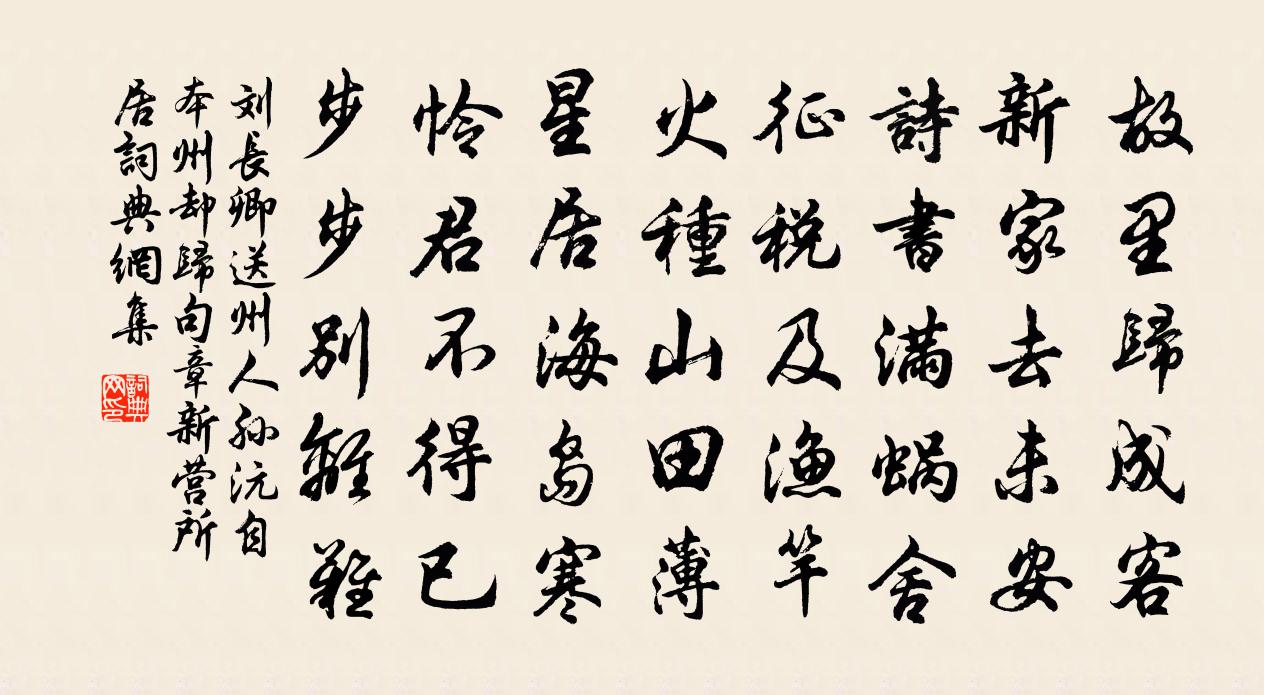 故里歸成客
新家去未安
詩書滿蝸舍
征税及漁竿
火種山田薄
星居海島寒
怜君不得已
步步別離難
刘長卿送州人孙沅自
本州却歸句章新营所
居詞典網集
詞典網印